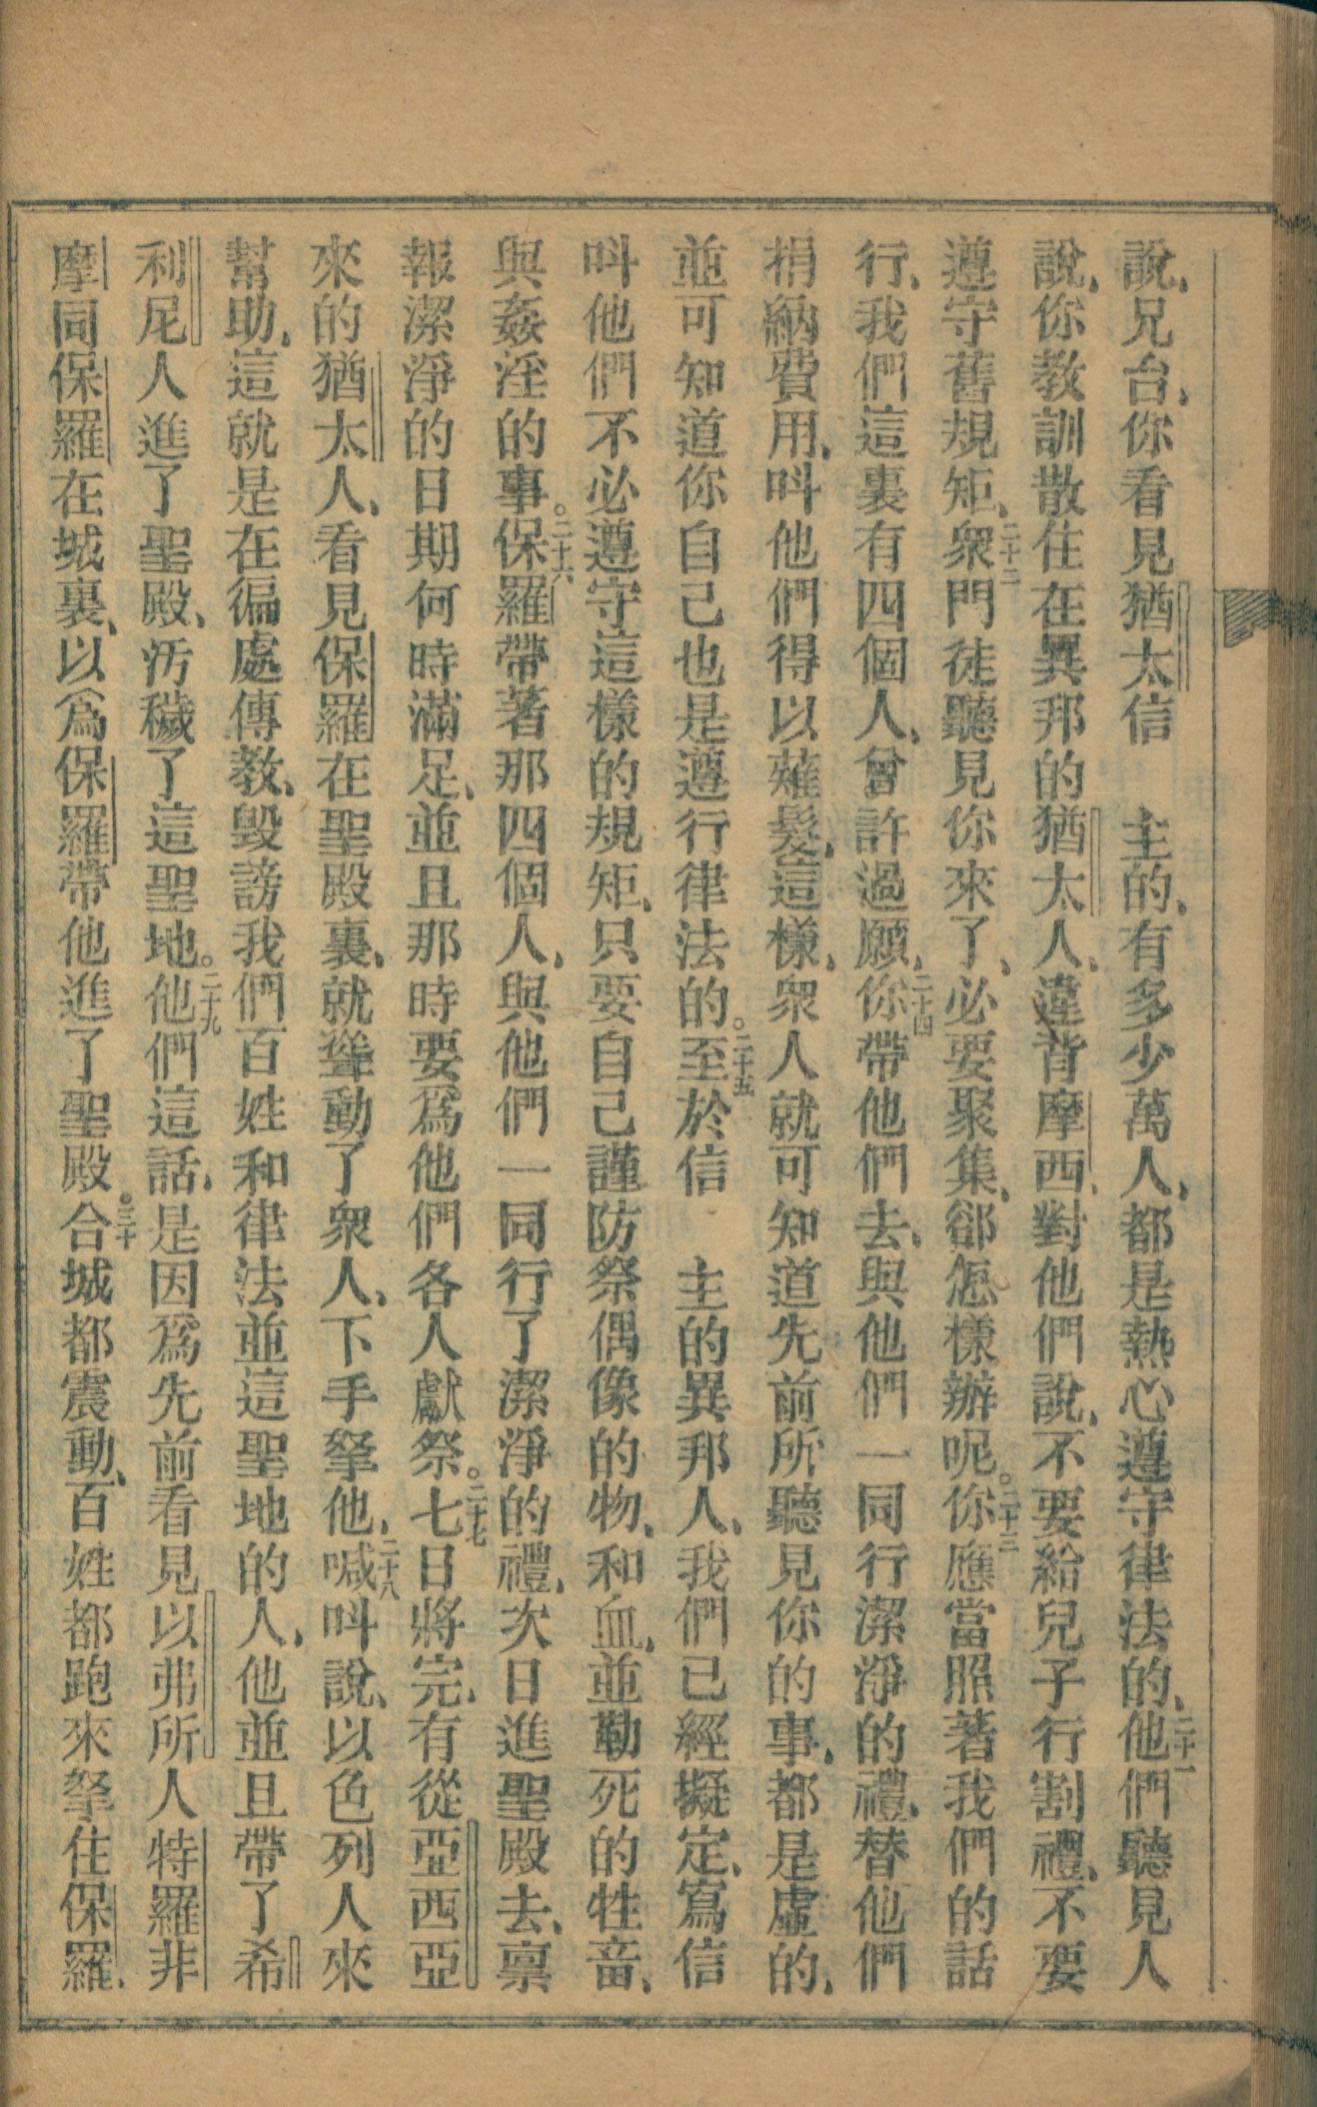 說、兄台、你看見猶太信　主的、有多少萬人、都是熱心遵守律法的、二十一他們聽見人
說、你教訓散住在異邦的猶太人、違背摩西、對他們說、不要給兒子行割禮、不要
遵守舊規矩、二十二衆門徒聽見你來了、必要聚集、郤怎樣辦呢。二十三你應當照著我們的話
行、我們這裏有四個人、曾許過願、二十四你帶他們去、與他們一同行潔淨的禮、替他們
捐納費用、呌他們得以薙髮、這樣、衆人就可知道先前所聽見你的事、都是虛的、
並可知道你自己也是遵行律法的。二十五至於信　主的異邦人、我們已經擬定、寫信
呌他們不必遵守這樣的規矩、只要自己謹防祭偶像的物、和血、並勒死的牲畜、
與姦淫的事。二十六保羅帶著那四個人、與他們一同行了潔淨的禮、次日進聖殿去、禀
報潔淨的日期何時滿足、並且那時要爲他們各人獻祭。二十七七日將完、有從亞西亞
來的猶太人、看見保羅在聖殿裏、就聳動了衆人、下手拏他、二十八喊呌說、以色列人來
幫助、這就是在徧處傳教、毀謗我們百姓和律法並這聖地的人、他並且帶了希
利尼人進了聖殿、汚穢了這聖地。二十九他們這話、是因爲先前看見以弗所人特羅非
摩同保羅在城裏、以爲保羅帶他進了聖殿。三十合城都震動、百姓都跑來拏住保羅、